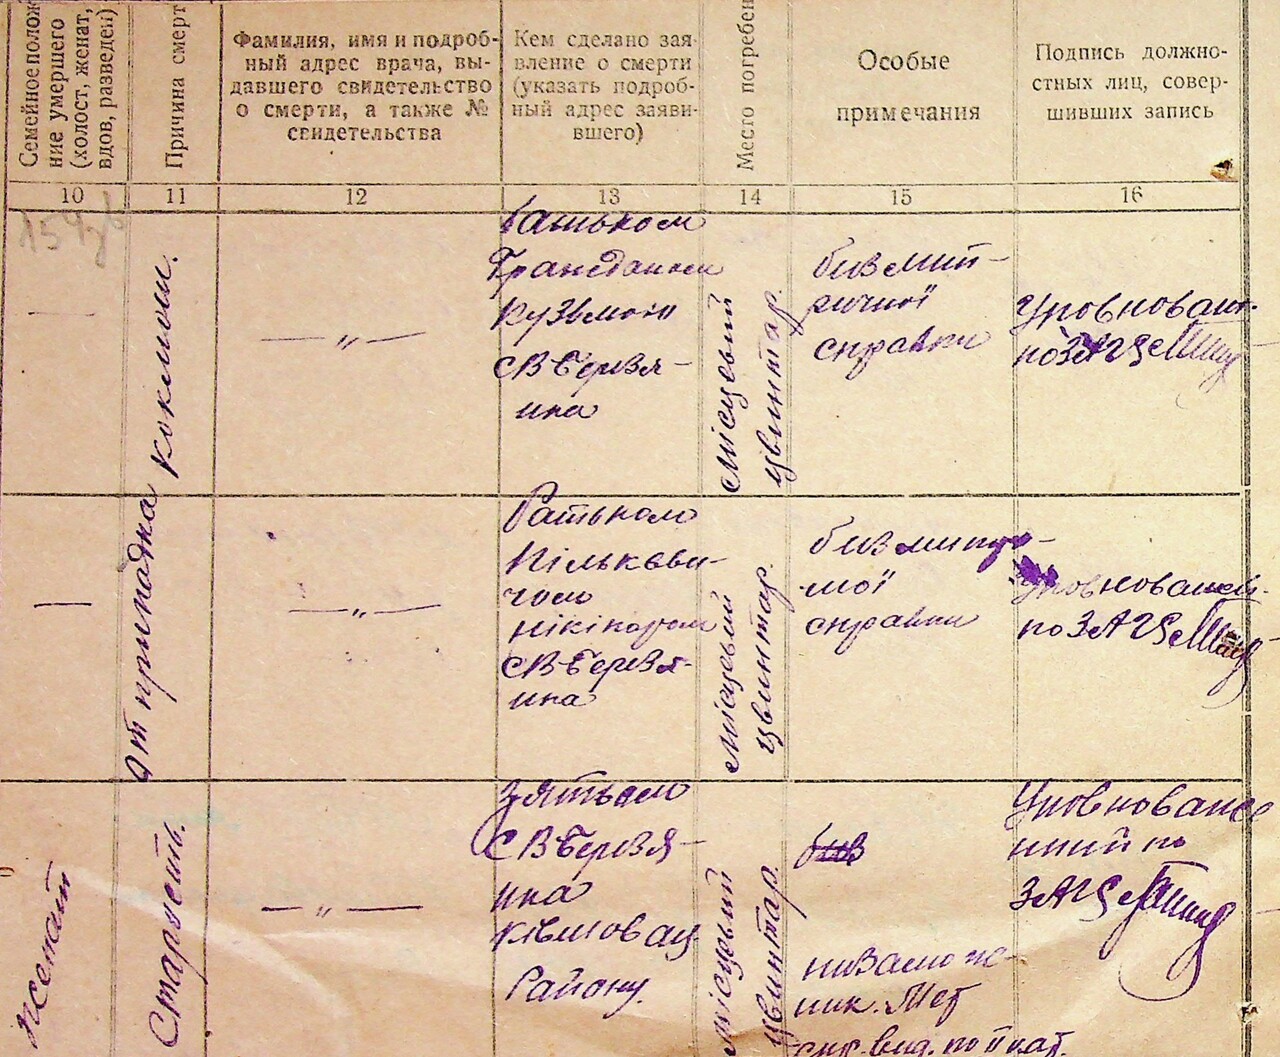 Семейное полож
ние умершего
(холост, женат,
вдов, разведен)
Причина смерт
Фамилия, имя и подроб-
ный адрес врача, вы-
давшего свидетельство
о смерти, а также №
свидетельства
Кем сделано зая
вление о смерти
(указать подроб-
ный адрес заяви-
вшего)
Место погребен
Особые
примечания
Подпись должно-
стных лиц, совер-
шивших запись
10
11
12
13
14
15
16
—
коклюш.
— „ —
батьком
Гражданом
Кузьмою
С В Березя-
ика
місцевий
цвинтар.
без мит-
ричної
справки
Уповноваж.
по ЗАГС
—
От припадка
— „ —
Батьком
ником
С В Березя-
ика
місцевий
цвинтар.
без
справки
Уповноважен.
по ЗАГС
женат
Старость.
— „ —
Зятьом
С В Березя-
ика
Району.
місцевий
цвинтар.
без
незамож-
ник.
Уповноваже
ний по
ЗАГС